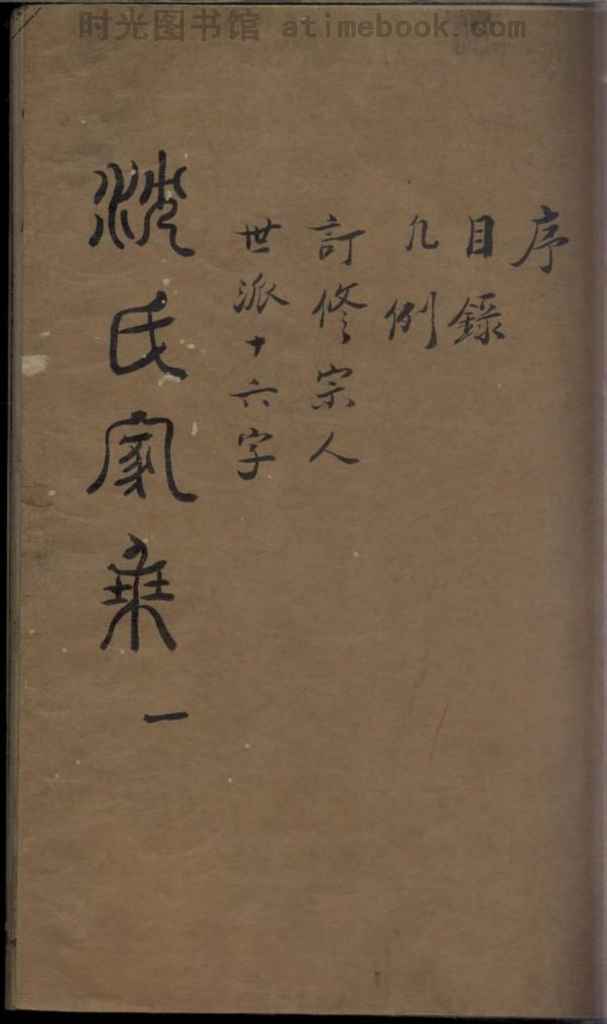 时光图书馆 atimebook.com
序
目錄
凡例
訂修宗人
世派十六字
沈氏家乘 一